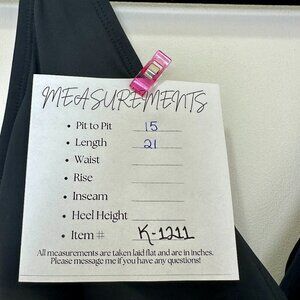 MEASUREMENTS
• Pit to Pit 15
• Length 21
• Waist
• Rise
• Inseam
• Heel Height
• Item # K-1211
All measurements are taken laid flat and are in inches.
Please message me if you have any questions!